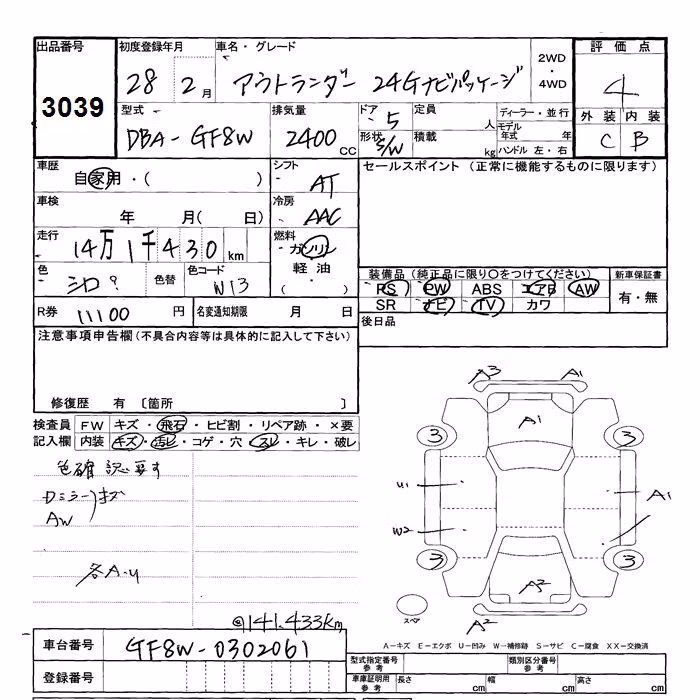 出品番号 初度登録年月 車名・グレード 2WD・4WD 評価点
3039 28 2月 アウトランダー 24Gナビパッケージ 4
型式 排気量 ドア 5 定員 人 ディーラー・並行 外装 内装
DBA-GF8W 2400CC 形状 S/W 積載 kg モデル年式 年 ハンドル 左・右 C B
車歴 シフト セールスポイント (正常に機能するものに限ります)
自家用・( ) AT
車検 冷房
年 月( 日) AAC
走行 燃料
14万1千430km ガソリン
色 色替 色コード 軽油 装備品(純正品に限り○をつけてください) 新車保証書
シロ? W13 ( ) PS PW ABS エアB AW 有・無
R券 11100円 名変通知期限 月 日 SR ナビ TV カワ
注意事項申告欄(不具合内容等は具体的に記入して下さい) 後日品
修復歴 有 〔箇所 〕
検査員 FW キズ・飛石・ヒビ割・リペア跡・×要
記入欄 内装 キズ・汚レ・コゲ・穴・スレ・キレ・破レ
色確認要す
Dミラーキズ
AW
各A-U
@141.433km
A3 A1
A1
3 3
U1 A1
W2
3 3
A2
スペア A2
A-キズ E-エクボ U-凹み W-補修跡 S-サビ C-腐食 XX-交換済
車台番号 GF8W-0302061 型式指定番号参考 類別区分番号参考
登録番号 車庫証明用参考 長さ cm 幅 cm 高さ cm